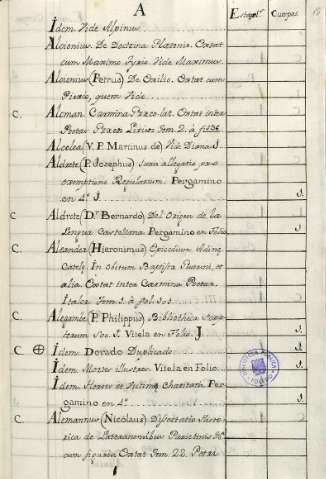 A
Estapte.s Cuerpos.
Idem Vide Alpinus.
Alcionius. De Doctrina Platonis. Extat
cum Maximo Tyrio Vide Maximus.
Alcionius (Petrus) De Exilio. Extat cum
Pierio, quem Vide.
C. Alcman Carmina Græco-lat. Extat inter
Poetas Græcos Liricos tom. 2. à fol
Alcolea (V. P. Martinus de) Vide Diana J.
Aldrete (P. Josephus) Iuris allegatio pro
exemptione Regularium. Pergamino
en 4.º J. 1.
C. Aldrete (D.n Bernardo) Del Origen de la
Lengua Castellana Pergamino en Folio 1.
C. Aleander (Hieronimus)
In obitum Baptistæ et
alia. Extat inter Carmina Poetar.
Italor. tom 1. à fol.
C. Alegambe (P. Philippus) Bibliotheca Scrip-
torum Soc. J. Vitela en Folio. J 1.
C. ⊕ Idem Dorado Duplicado 1.
Idem Mortes Illustres Vitela en Folio 1.
Idem Heroes et Victimæ Charitatis Per-
gamino en 4.º 1.
C. Alemannus (Nicolaus) Dissertatio Histo-
rica de Lateranensibus Parietinis
cum figuris Extat tom 22. Petri